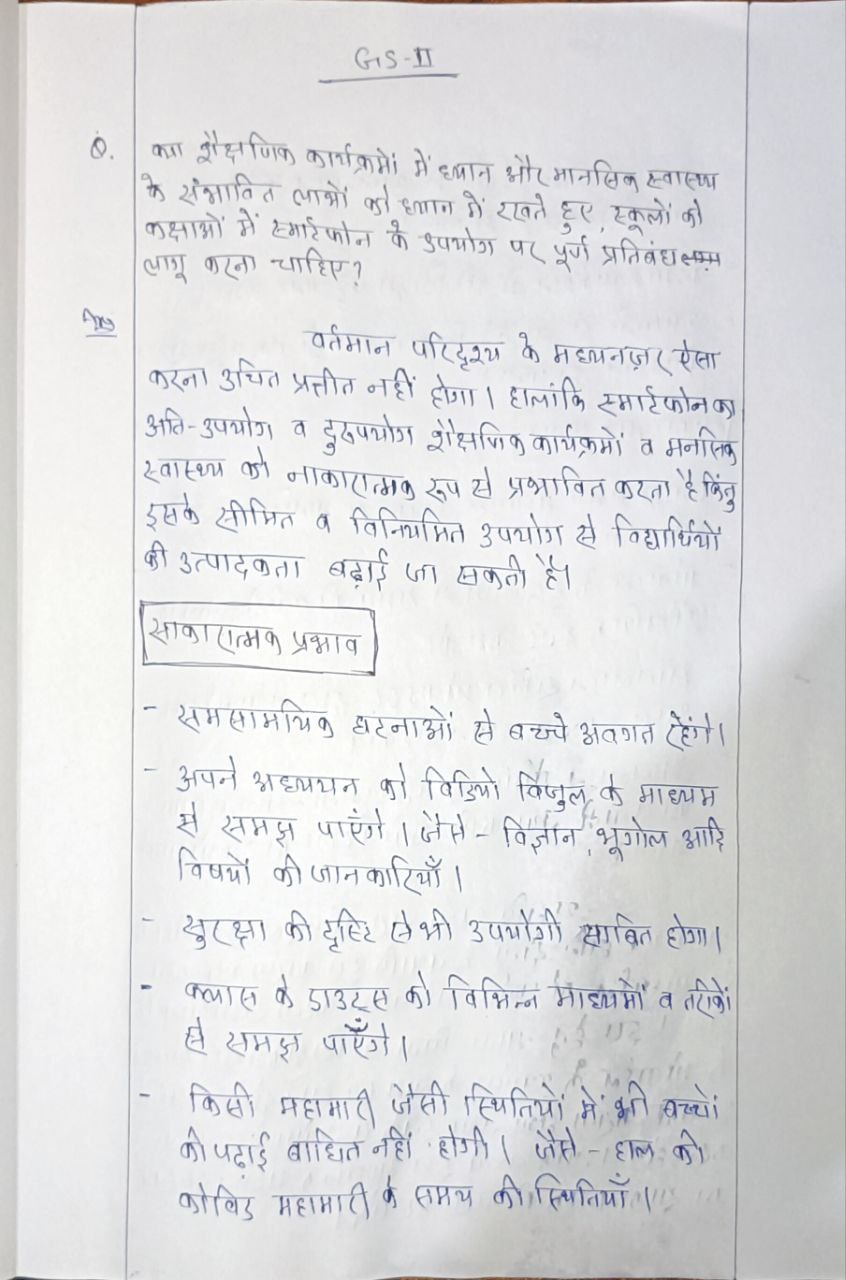 GS-II
Q. क्या शैक्षणिक कार्यक्रमों में ध्यान और मानसिक स्वास्थ्य
के संभावित लाभों को ध्यान में रखते हुए, स्कूलों को
कक्षाओं में स्मार्टफोन के उपयोग पर पूर्ण प्रतिबंध
लागू करना चाहिए?
Ans
वर्तमान परिदृश्य के मध्यनज़र ऐसा
करना उचित प्रतीत नहीं होगा। हालांकि स्मार्टफोन का
अति-उपयोग व दुरुपयोग शैक्षणिक कार्यक्रमों व मनसिक
स्वास्थ्य को नाकारात्मक रूप से प्रभावित करता है किंतु
इसके सीमित व विनियमित उपयोग से विद्यार्थियों
की उत्पादकता बढ़ाई जा सकती है।
साकारात्मक प्रभाव
- समसामयिक घटनाओं से बच्चे अवगत रहेंगे।
- अपने अध्ययन को विडियो विजुल के माध्यम
से समझ पाएंगे। जैसे - विज्ञान, भूगोल आदि
विषयों की जानकारियाँ।
- सुरक्षा की दृष्टि से भी उपयोगी साबित होगा।
- क्लास के डाउट्स को विभिन्न माध्यमों व तरीकों
से समझ पाएँगे।
- किसी महामारी जैसी स्थितियों में भी बच्चों
की पढ़ाई बाधित नहीं होगी। जैसे - हाल की
कोविड महामारी के समय की स्थितियाँ।